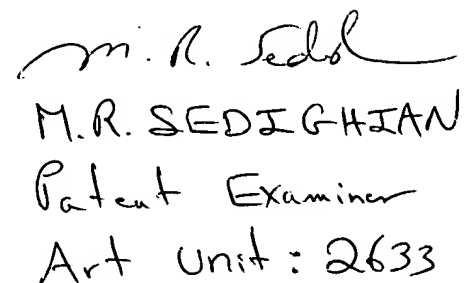 M. R. Sedol
M.R. SEDIGHIAN
Patent Examiner
Art Unit: 2633